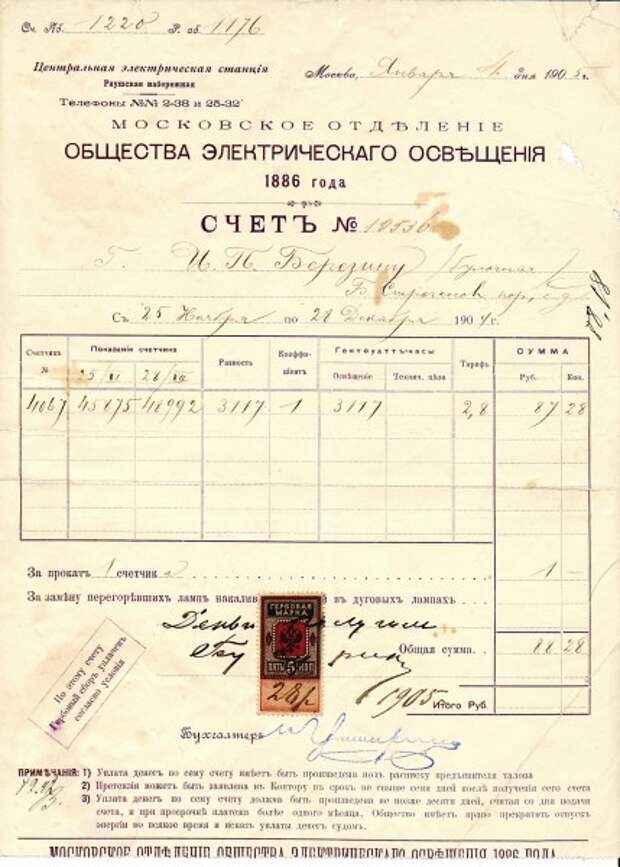 Сч. № 1220 Р. об. 1176
Центральная электрическая станція
Раушская набережная
Телефоны №№ 2-38 и 25-32
Москва, Января 4 дня 1905 г.
МОСКОВСКОЕ ОТДѢЛЕНІЕ
ОБЩЕСТВА ЭЛЕКТРИЧЕСКАГО ОСВѢЩЕНІЯ
1886 года
СЧЕТЪ № 19536
Г. И. П. Березину (булочная)
Б. Строченов. пер., с. д.
81.81
Съ 25 Ноября по 28 Декабря 1904 г.
Счетчикъ № Показанія счетчика Разность Коэффи-ціентъ Гектоуаттъ-часы Тарифъ СУММА
25/XI 28/XII Освѣщеніе Технич. цѣли Руб. Коп.
4067 45875 48992 3117 1 3117 2,8 87 28
За прокатъ 1 счетчик а 1 —
За замѣну перегорѣвшихъ лампъ накалив в дуговыхъ лампахъ
ГЕРБОВАЯ
МАРКА
5
ПЯТЬ КОП
28 р
Деньги получил
Общая сумма 88 28
1905
Итого Руб.
По этому счету
Гербовый сборъ уплаченъ
согласно условія
Бухгалтеръ
ПРИМѢЧАНІЯ: 1) Уплата денегъ по сему счету имѣетъ быть произведена подъ расписку предъявителя талона
2) Претензіи можетъ быть заявлена въ Контору въ срокъ не свыше семи дней послѣ полученія сего счета
3) Уплата денегъ по сему счету должна быть произведена не позже десяти дней, считая со дня подачи
счета, а при просрочкѣ платежа болѣе одного мѣсяца. Общество имѣетъ право прекратить отпускъ
энергіи во всякое время и искать уплаты денегъ судомъ.
МОСКОВСКОЕ ОТДѢЛЕНІЕ ОБЩЕСТВА ЭЛЕКТРИЧЕСКАГО ОСВѢЩЕНІЯ 1886 ГОДА